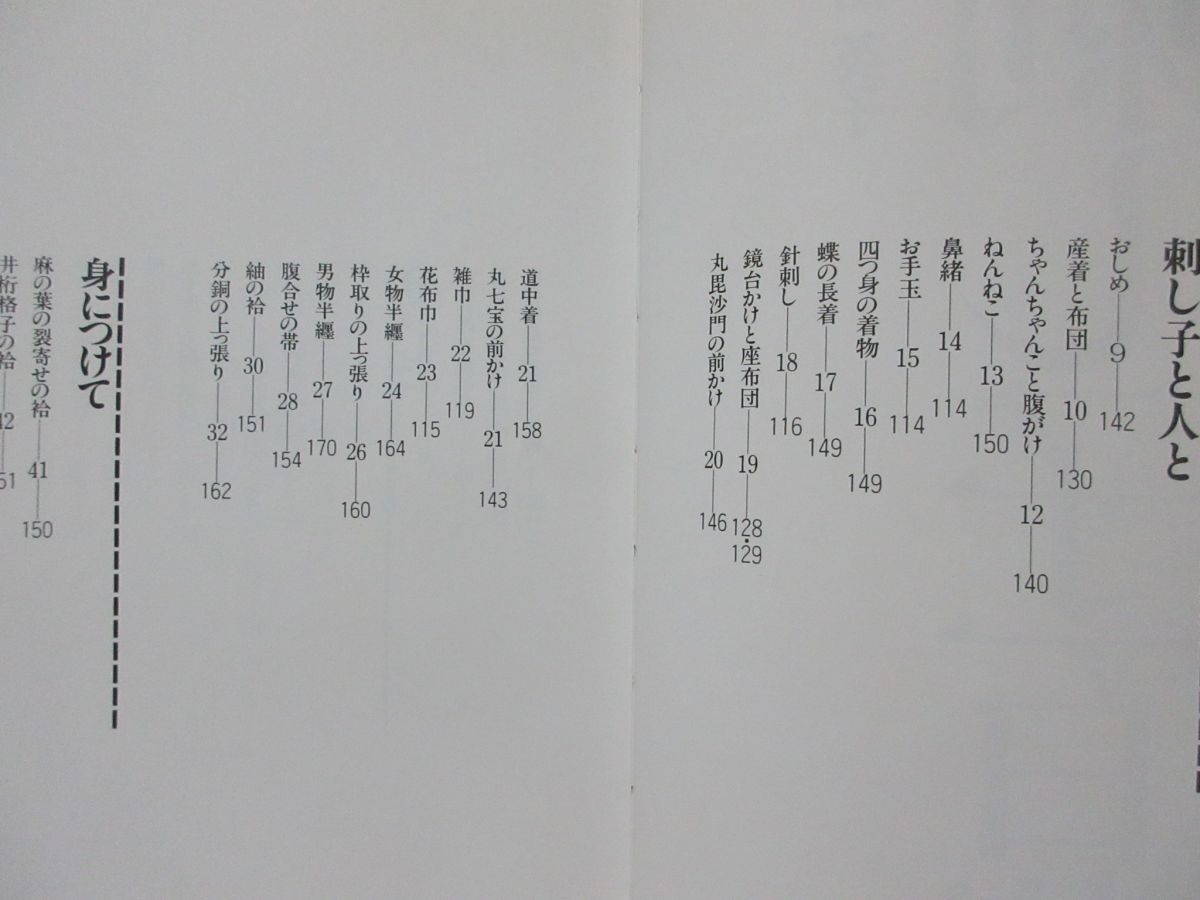 刺し子と人と
おしめ——9——142
産着と布団——10——130
ちゃんちゃんこと腹がけ——12——140
ねんねこ——13——150
鼻緒——14——114
お手玉——15——114
四つ身の着物——16——149
蝶の長着——17——149
針刺し——18——116
鏡台かけと座布団——19——128・129
丸毘沙門の前かけ——20——146
道中着——21——158
丸七宝の前かけ——21——143
雑巾——22——119
花布巾——23——115
女物半纏——24——164
枠取りの上っ張り——26——160
男物半纏——27——170
腹合せの帯——28——154
紬の袷——30——151
分銅の上っ張り——32——162
身につけて
麻の葉の裂寄せの袷——41——150
井桁格子の袷——42——